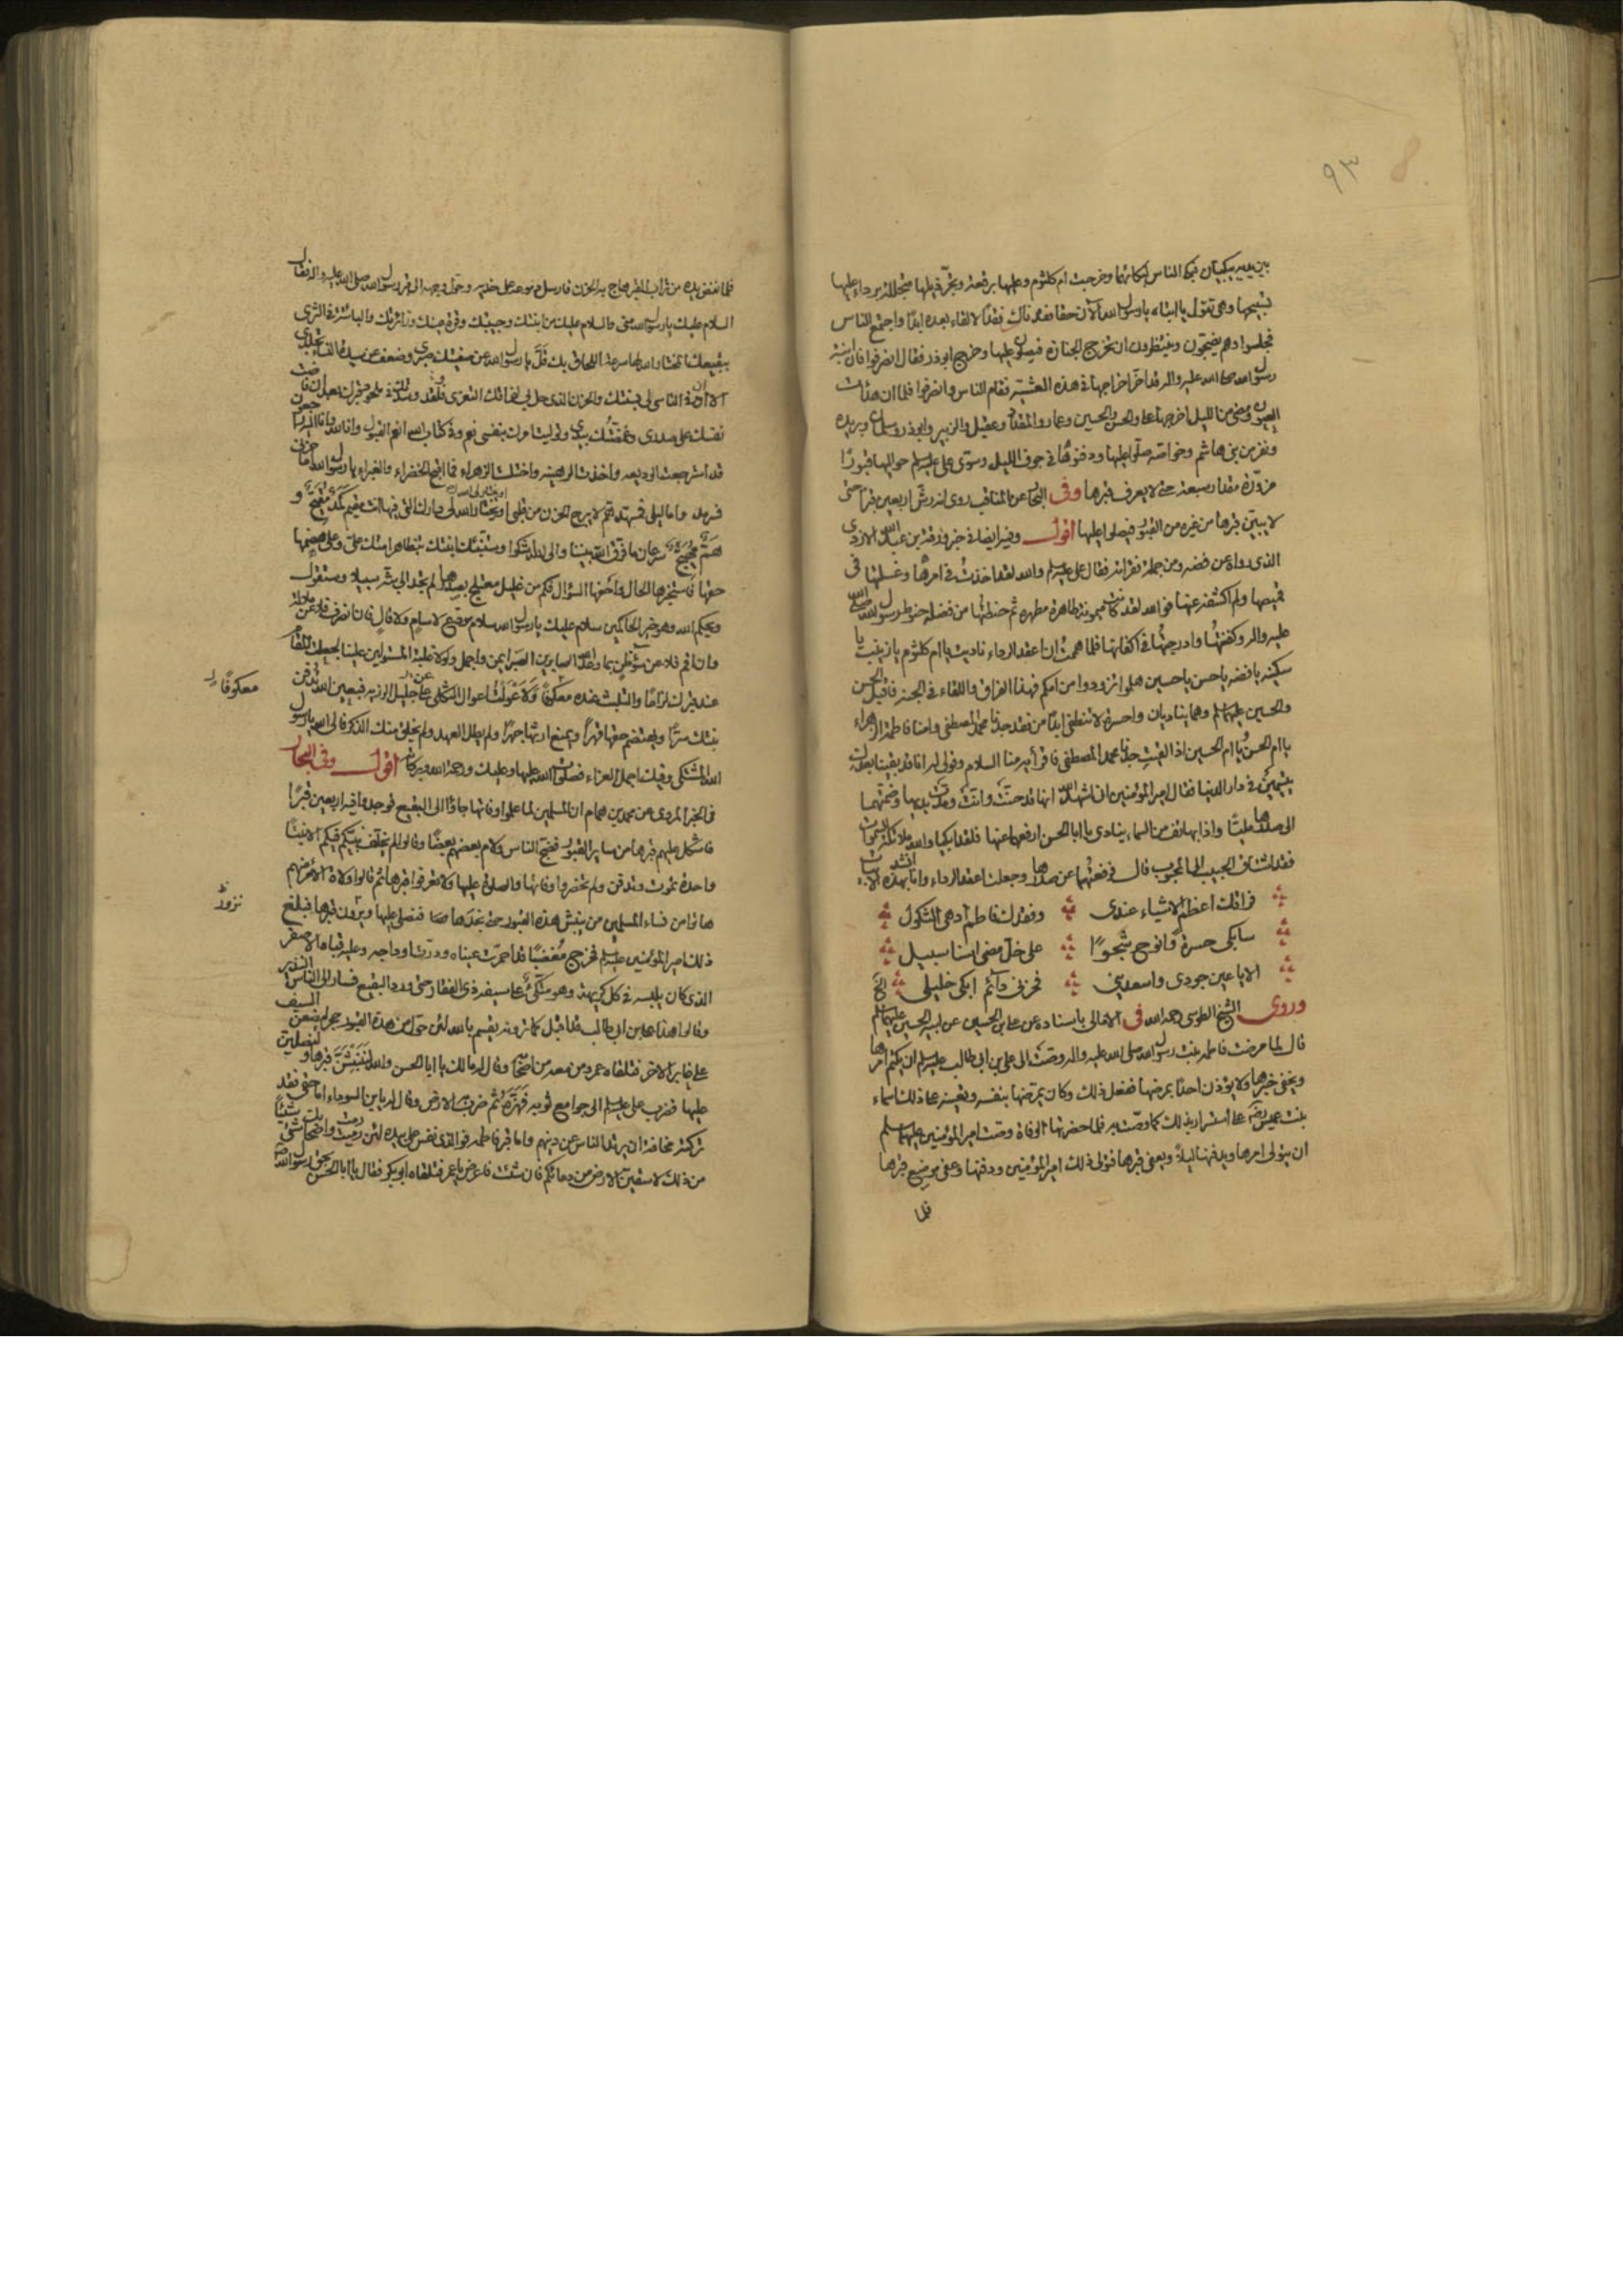 ٩٣
بين يديه يبكيان فبكى الناس لبكائهما وخرجت ام كلثوم وعليها برقعة وتجرّ ذيلها متجللة برداء عليها
تسبيحها وهي تقول يا ابتاه يا رسول الله الآن حقا فقدناك فقدًا لا لقاء بعده ابدًا واجتمع الناس
فجلسوا وهم يضجون وينتظرون ان تخرج الجنازة فيصلون عليها وخرج ابو ذر فقال انصرفوا فان ابنة
رسول الله صلى الله عليه واله قد اخّر اخراجها في هذه العشية فقام الناس وانصرفوا فلما ان هدأت
العيون ومضى من الليل اخرجها علي والحسن والحسين وعمار والمقداد وعقيل والزبير وابوذر وسلمان وبريده
ونفر من بني هاشم وخواصه صلّوا عليها ودفنوها في جوف الليل وسوّى علي عليه السلم حواليها قبورًا
مزوّرة مقدار سبعة حتى لا يعرف قبرها وفى البحار عن المناقب روى انه رشّ اربعين قبرًا حتى
لا يبيّن قبرها من غيره من القبور فيصلوا عليها اقول وفيه ايضا في خبر ورقة بن عبد الله الازدى
الذى رواه عن فضه ومن جملة فقراته فقال علي عليه السلم والله لقد اخذتُ في امرها وغسلتها فى
قميصها ولم اكشفه عنها فوالله لقد كانت ميمونة طاهرة مطهره ثم حنطتُها من فضلة حنوط رسول الله صلى الله
عليه واله وكفنتُها وادرجتُها في اكفانها فلما هممتُ ان اعقد الرداء ناديت يا ام كلثوم يا زينب يا
سكينه يا فضه يا حسن يا حسين هلموا تزودوا من امكم فهذا الفراق واللقاء فى الجنة فاقبل الحسن
والحسين عليهما السلم وهما يناديان واحسرة لا تنطفى ابدًا من فقد جدنا محمد المصطفى وامنا فاطمة الزهراء
يا ام الحسن ويا ام الحسين اذا لقيتِ جدنا محمد المصطفى فاقرأيه منا السلام وقولى له انا قد بقينا بعدك
يتيمين فى دار الدنيا فقال امير المؤمنين انى اشهد الله انها قد حنّت وانّت ومدّت يديها وضمّتهما
الى صدرها مليًّا واذا بهاتف من السماء ينادى يا ابا الحسن ارفعهما عنها فلقد ابكيا والله ملائكة السموات
فقد اشتاق الحبيب الى المحبوب قال فرفعتُهما عن صدرها وجعلت اعقد الرداء وانا انشد بهذه الابيات
فراقك اعظم الاشياء عندى وفقدك فاطم ادهى الثكول
سابكى حسرة وانوح شجوًا على خلّ مضى اسنا سبيل
الا يا عين جودى واسعدينى فحزنى دآئم ابكى خليلى الخ
وروى الشيخ الطوسى رحمه الله فى الامالى باسناده عن علي بن الحسين عن ابيه الحسين عليهما السلم
قال لما مرضت فاطمه بنت رسول الله صلى الله عليه واله وصّت الى علي بن ابى طالب عليه السلم ان يكتم امرها
ويخفى خبرها ولا يؤذن احدًا بمرضها ففعل ذلك وكان يمرّضها بنفسه وتعينه على ذلك اسماء
بنت عميس رضى على استسرار بذلك كما وصّت به فلما حضرتها الوفاة وصّت امير المؤمنين عليهما السلم
ان يتولى امرها ويدفنها ليلًا ويعفى قبرها فتولى ذلك امير المؤمنين ودفنها وعفى موضع قبرها
فلما
فلما نفض يده من تراب القبر هاج به الحزن فارسل دموعه على خديه وحوّل وجهه الى قبر رسول الله صلى الله عليه واله فقال
السلام عليك يا رسول الله منى والسلام عليك من ابنتك وحبيبتك وقرة عينك وزائرتك والبائتة في الثرى
ببقيعك المختار الله لها سرعة اللحاق بك قلّ يا رسول الله عن صفيتك صبرى وضعف عن سيدة النساء تجلدى
الا ان فى التاسى لى بسنتك والحزن الذى حل بى لفراقك التعزى ولقد وسدتك في ملحود قبرك بعد ان فاضت
نفسك على صدرى وغمضتُك بيدى وتوليت امرك بنفسى نعم وفى كتاب الله انعم القبول وانا لله وانا اليه راجعون
قد استرجعت الوديعه واخذت الرهينه واختلست الزهراء فما اقبح الخضراء والغبراء يا رسول الله اما حزنى
فسرمد واما ليلى فمسهّد همّ لا يبرح الحزن من قلبى او يختار الله لى دارك التى فيها انت مقيم كمدٌ مقيّح و
همّ مهيّج سرعان ما فرّق الله بيننا والى الله اشكوا وستنبئك ابنتك بتظاهر امتك علىّ وعلى هضمها
حقها فاستخبرها الحال واحفها السؤال فكم من غليل معتلج بصدرها لم تجد الى بثّه سبيلا وستقول
ويحكم الله وهو خير الحاكمين سلام عليك يا رسول الله سلام مودّع لا سئم ولا قال فان انصرف فلا عن ملالة
وان اقم فلا عن سوء ظن بما وعد الله الصابرين الصبر ايمن واجمل ولولا غلبة المستولين علينا لجعلت المقام
عند قبرك لزامًا والتلبث عنده معكوفًا ولاعولتُ اعوال الثكلى على جليل الرزيه فبعين الله تدفن
معكوفًا
بنتك سرًّا ويهتضم حقها قهرًا ويمنع ارثها جهرًا ولم يطل العهد ولم يخلق منك الذكر فالى الله يا رسول
الله المشتكى وفيك اجمل العزاء فصلوات الله عليها وعليك ورحمة الله وبركاته اقول وفى البحار
فى الخبر المروى عن محمد بن همام ان المسلمين لما علموا وفاتها جاؤا الى البقيع فوجدوا فيه اربعين قبرًا
فاشكل عليهم قبرها من ساير القبور فضج الناس ولام بعضهم بعضًا وقالوا لم يخلّف نبيّكم فيكم الا بنتًا
واحدة تموت وتدفن ولم تحضروا وفاتها والصلوة عليها ولا تعرفوا قبرها ثم قالوا ولاة الامر منهم
هاتوا من نساء المسلمين من ينبش هذه القبور حتى نجدها فنصلى عليها ونزور قبرها فبلغ
نزورُ
ذلك امير المؤمنين عليه السلم فخرج مُغضبًا قد احمرّت عيناه ودرّت اوداجه وعليه قباه الاصفر
الذى كان يلبسه فى كل كريهة وهو متّكئ على سيفه ذى الفقار حتى ورد البقيع فسار الى الناس النذير
وقالوا هذا علي بن ابى طالب قد اقبل كما ترونه يقسم بالله لئن حوّل من هذه القبور حجر ليضعن السيف
على غابر الاخر فتلقاه عمر ومن معه من اصحابه وقال له مالك يا ابا الحسن والله لننبشنّ قبرها و لنصلين
عليها فضرب علي عليه السلم الى جوامع ثوبه فهزّه ثم ضرب به الارض وقال له يا بن السوداء اما حقى فقد
تركته مخافة ان يرتد الناس عن دينهم واما قبر فاطمه فوالذى نفس علي بيده لئن رمت واصحابك شيئًا
من ذلك لاسقينّ الارض من دمائكم فان شئت فاعرض يا عمر فتلقاه ابو بكر فقال يا ابا الحسن بحق رسول الله